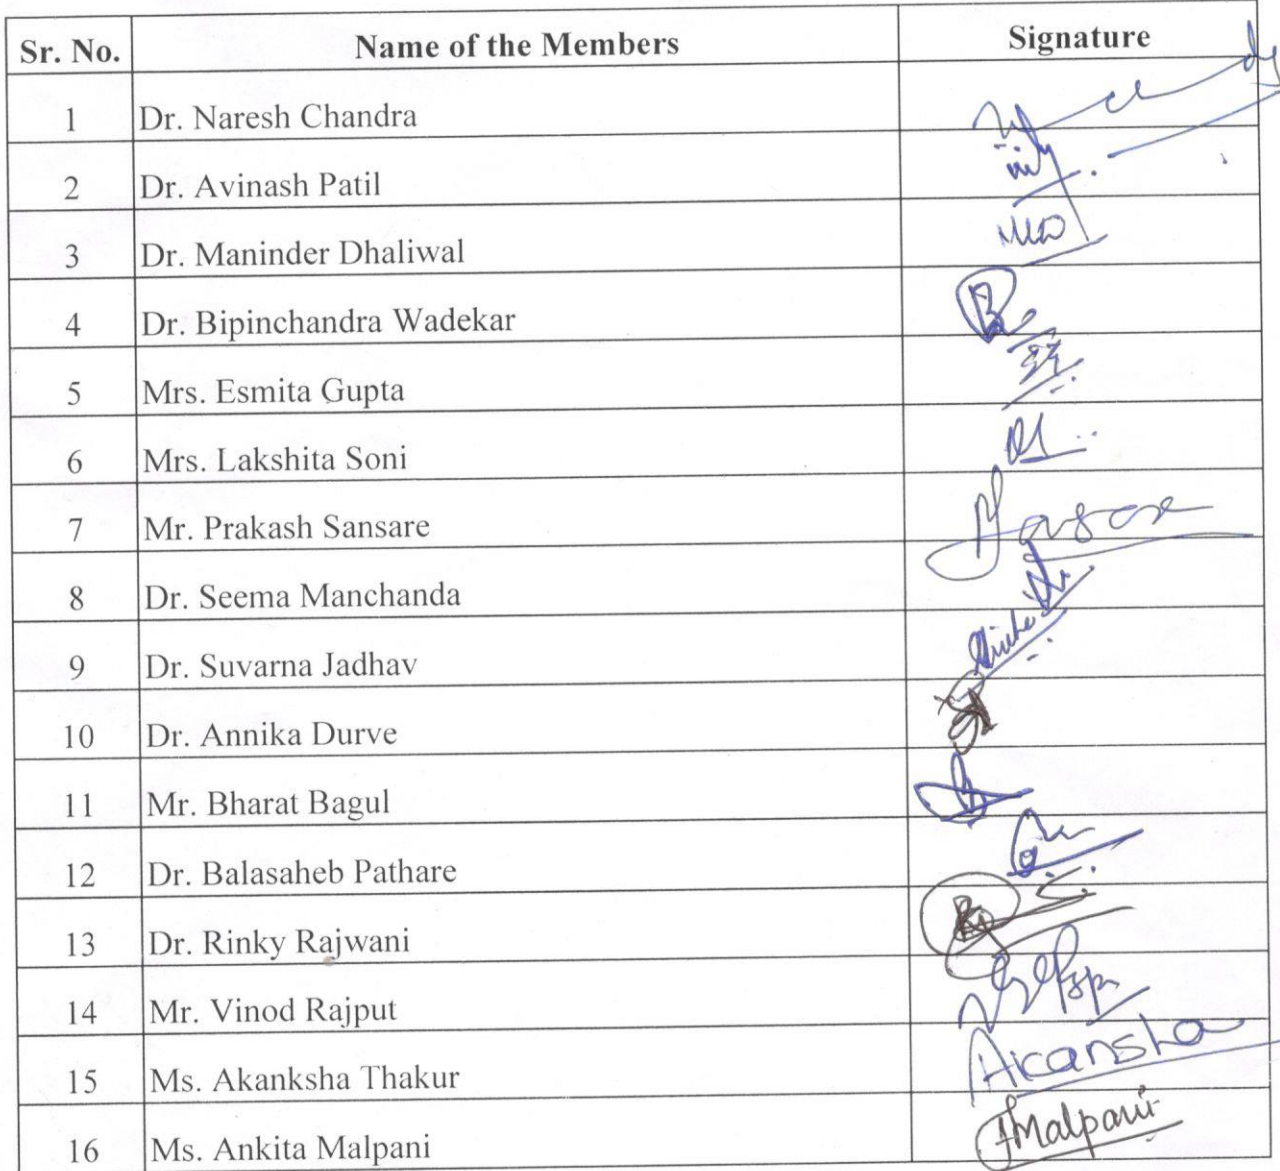 Sr. No. Name of the Members Signature
1 Dr. Naresh Chandra
2 Dr. Avinash Patil
3 Dr. Maninder Dhaliwal
4 Dr. Bipinchandra Wadekar
5 Mrs. Esmita Gupta
6 Mrs. Lakshita Soni
7 Mr. Prakash Sansare
8 Dr. Seema Manchanda
9 Dr. Suvarna Jadhav
10 Dr. Annika Durve
11 Mr. Bharat Bagul
12 Dr. Balasaheb Pathare
13 Dr. Rinky Rajwani
14 Mr. Vinod Rajput
15 Ms. Akanksha Thakur Akansha
16 Ms. Ankita Malpani Malpani